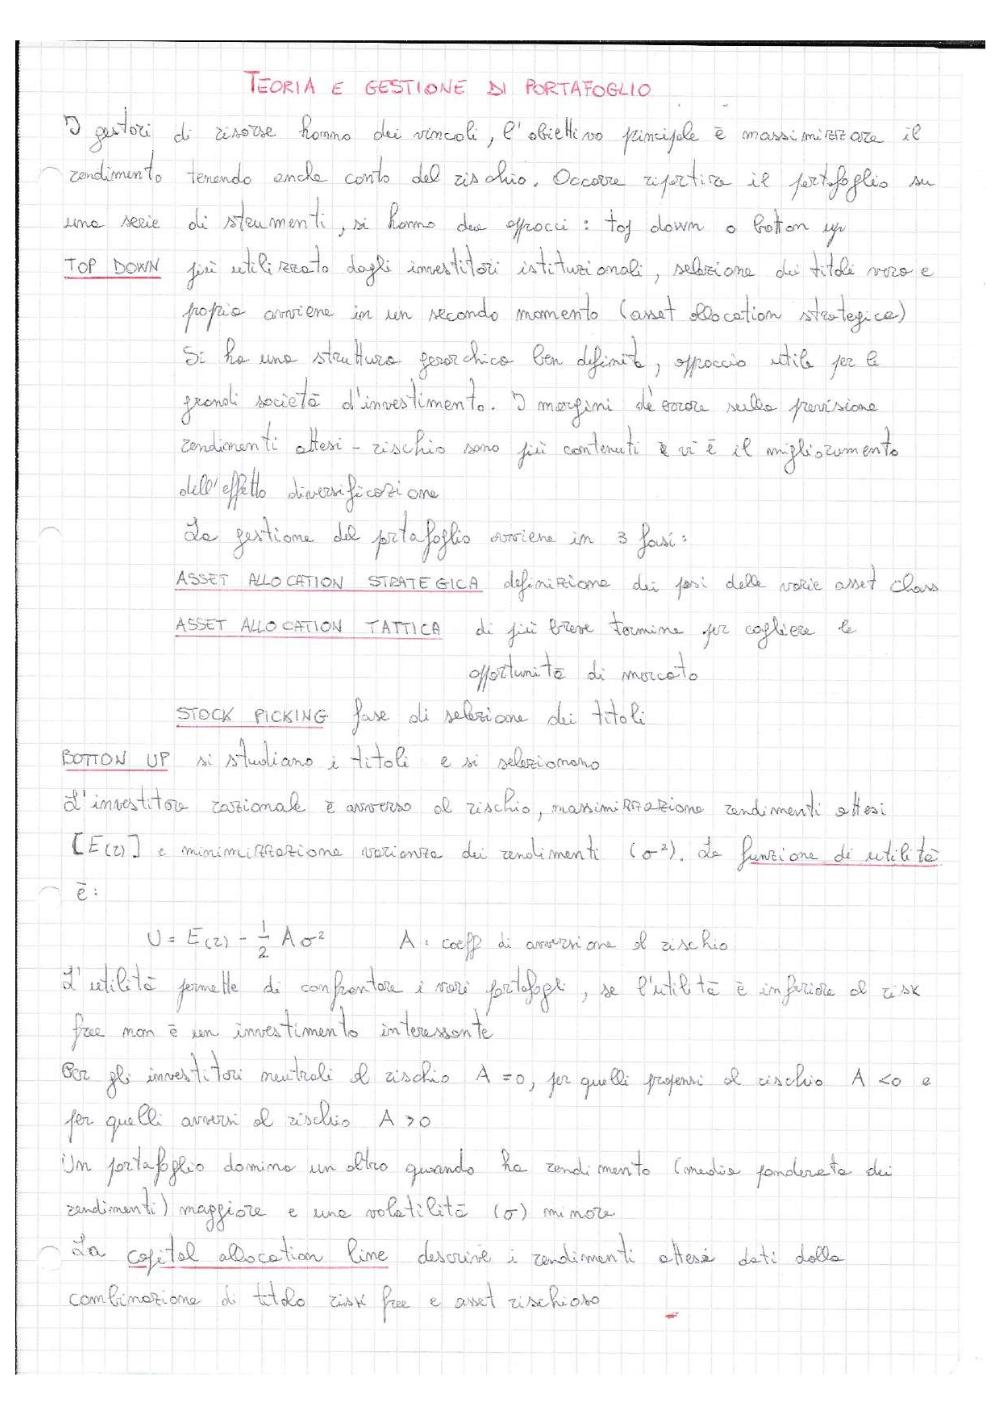 TEORIA E GESTIONE DI PORTAFOGLIO
I gestori di risorse hanno dei vincoli, l'obiettivo principle è massimizzare il
rendimento tenendo anche conto del rischio. Occorre ripartire il portafoglio su
una serie di strumenti, si hanno due approcci : top down o botton up
TOP DOWN più utilizzato dagli investitori istituzionali, selezione dei titoli vera e
propria avviene in un secondo momento (asset allocation strategica)
Si ha una struttura gerarchica ben definita, approccio utile per le
grandi società d'investimento. I margini di errore sulla previsione
rendimenti attesi - rischio sono più contenuti e vi è il miglioramento
dell'effetto diversificazione
La gestione del portafoglio avviene in 3 fasi:
ASSET ALLOCATION STRATEGICA definizione dei pesi delle varie asset class
ASSET ALLOCATION TATTICA di più breve termine per cogliere le
opportunità di mercato
STOCK PICKING fase di selezione dei titoli
BOTTON UP si studiano i titoli e si selezionano
L'investitore razionale è avverso al rischio, massimizzazione rendimenti attesi
[E(r)] e minimizzazione varianza dei rendimenti (σ²). La funzione di utilità
è:
U = E(r) - 1/2 A σ² A : coeff di avversione al rischio
L'utilità permette di confrontare i vari portafogli, se l'utilità è inferiore al risk
free non è un investimento interessante
Per gli investitori neutrali al rischio A = 0, per quelli propensi al rischio A < 0 e
per quelli avversi al rischio A > 0
Un portafoglio domina un altro quando ha rendimento (media ponderata dei
rendimenti) maggiore e una volatilità (σ) minore
La capital allocation line descrive i rendimenti attesi dati dalla
combinazione di titolo risk free e asset rischioso